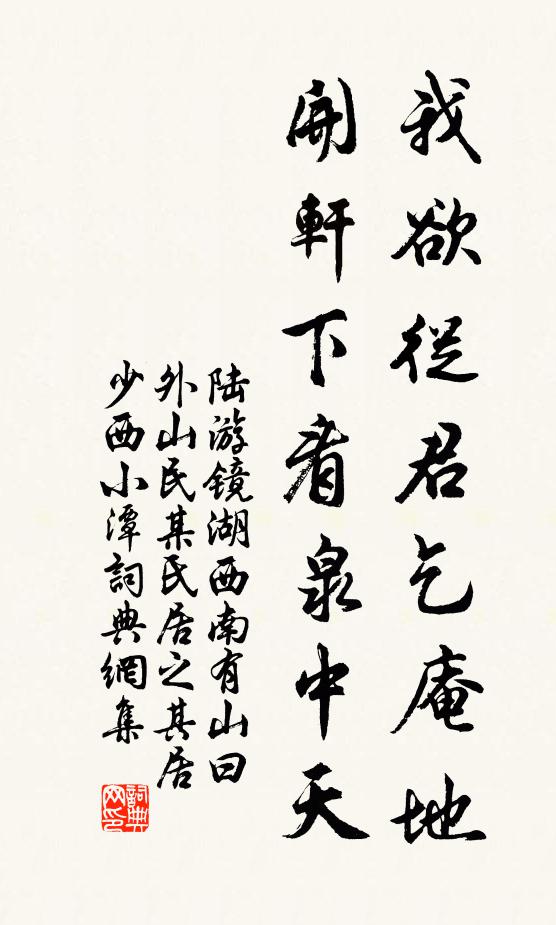 我欲從君乞庵地
開軒下看泉中天
陆游镜湖西南有山曰
外山民某氏居之其居
少西小潭詞典網集
詞典网印